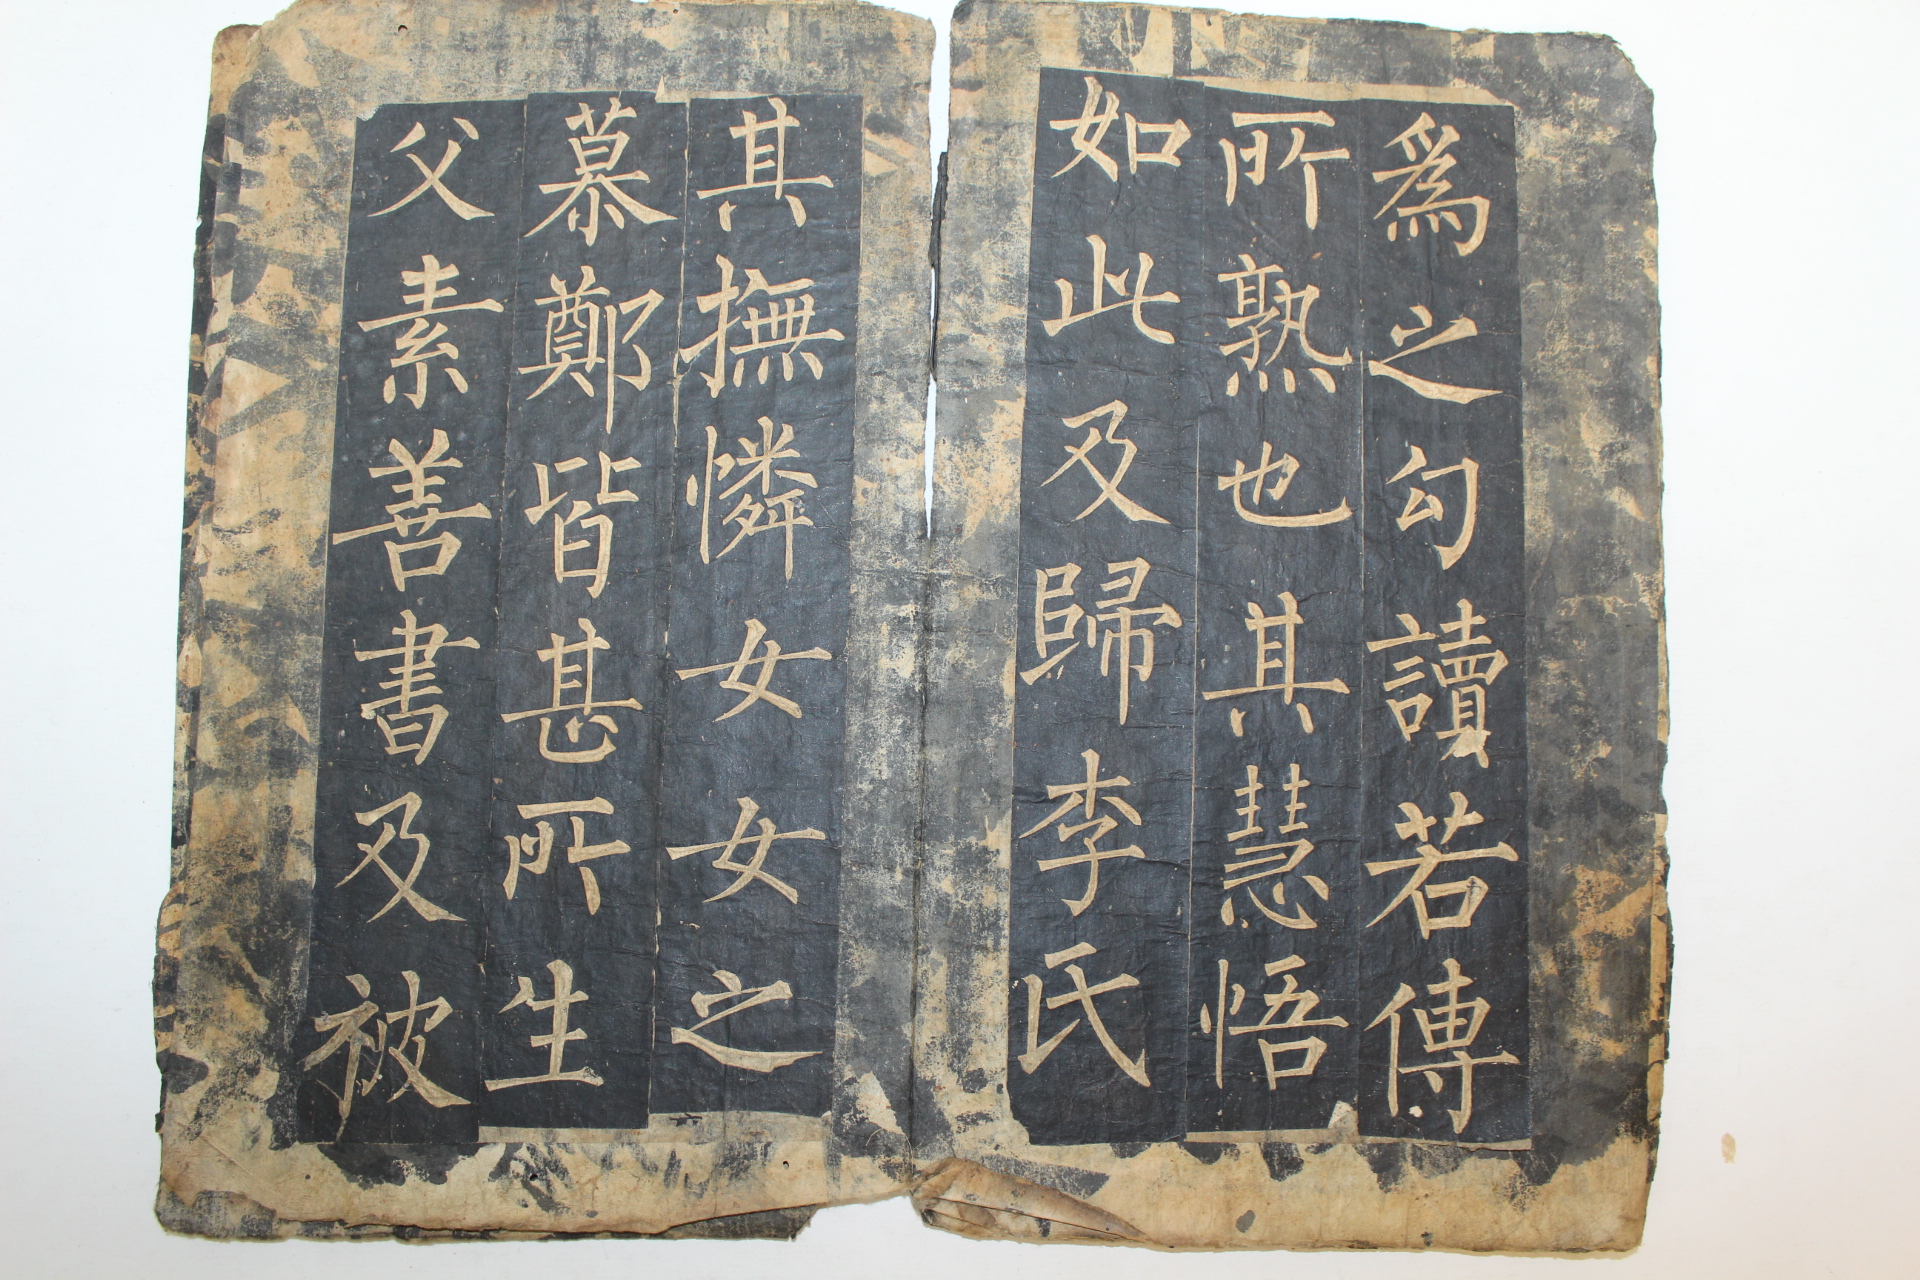 爲之句讀若傳
所熟也其慧悟
如此及歸李氏
其撫憐女女之
慕鄭皆甚所生
父素善書及被